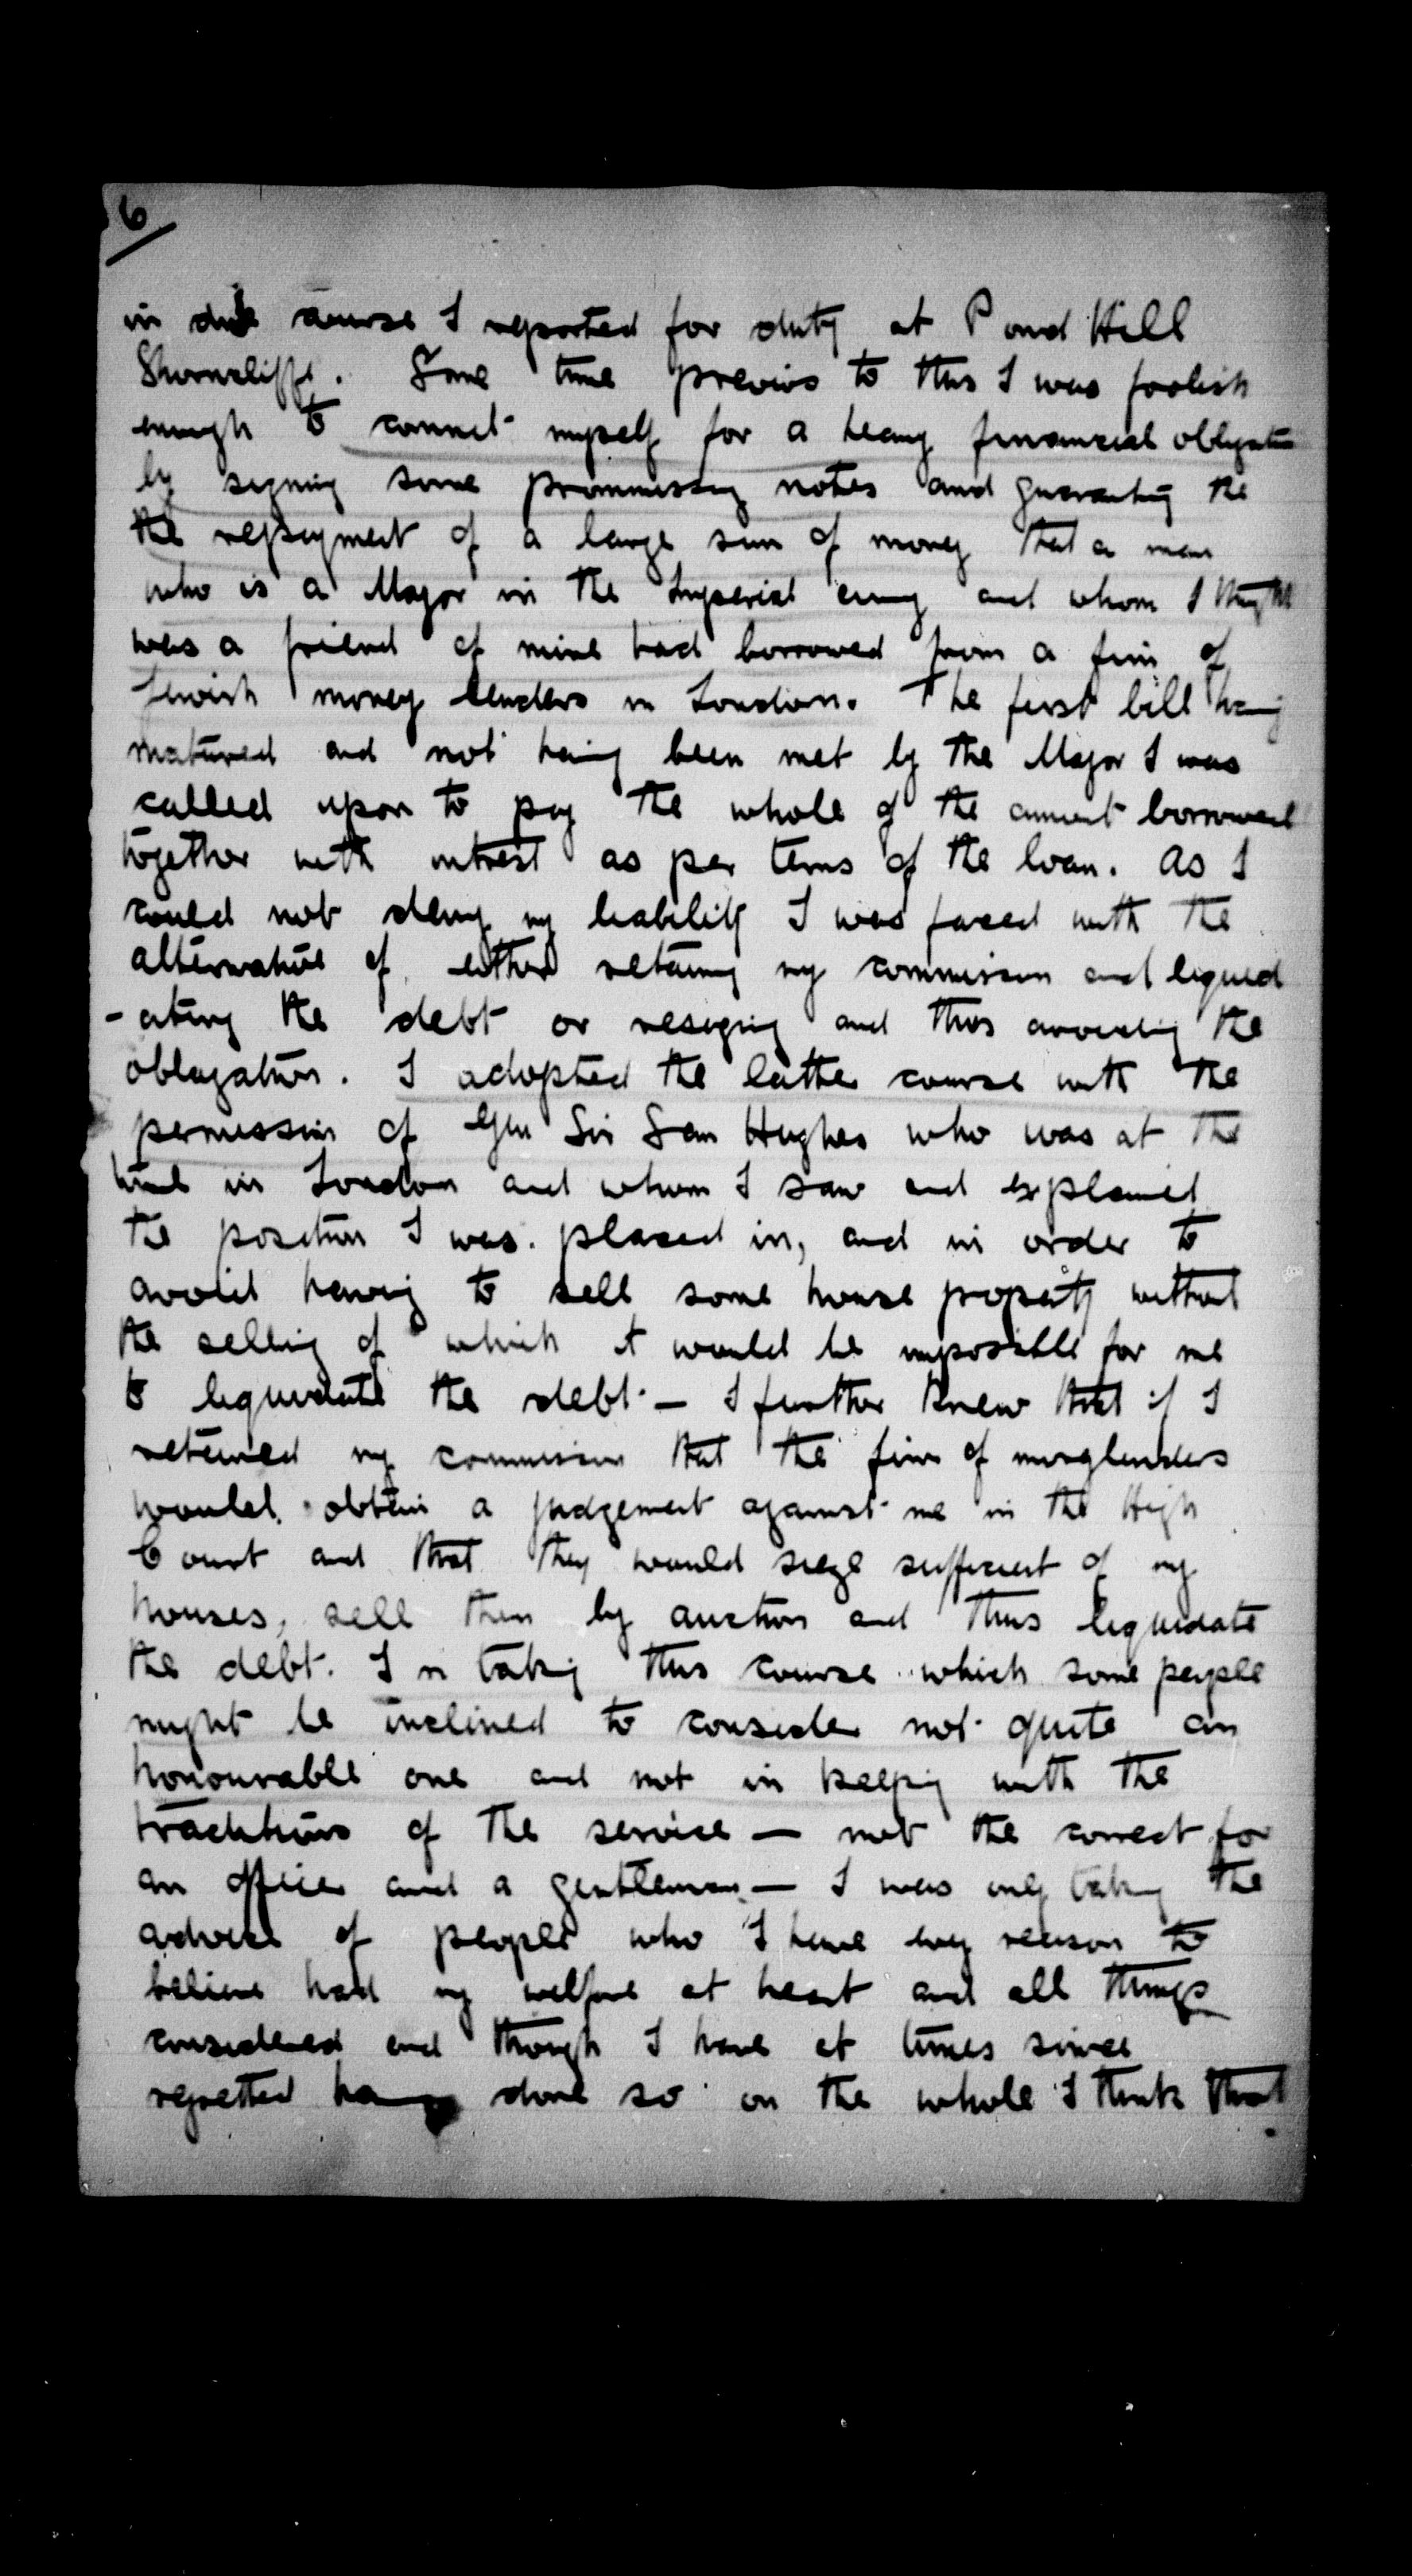 6
in due course I reported for duty at Pond Hill
Shorncliffe. Some time previos to this I was foolish
enough to commit myself for a heavy financial obligation
by signing some prommissory notes and guaranteeing the
the repayment of a large sum of money that a man
who is a Major in the Imperial army and whom I thought
was a friend of mine had borrowed from a firm of
Jewish money lenders in London. The first bill having
matured and not having been met by the Major I was
called upon to pay the whole of the amount borrowed
together with intrest as per terms of the loan. As I
could not deny my liability I was faced with the
alternative of either retaining my commission and liquid
-ating the debt or resigning and thus avoiding the
obligation. I adopted the latter course with the
permission of Gen Sir Sam Hughes who was at the
time in London and whom I saw and explained
the position I was placed in, and in order to
avoid having to sell some house property without
the selling of which it would be impossible for me
to liquidate the debt - I further knew that if I
retained my commission that the firm of moneylenders
would obtain a judgement against me in the High
Court and that they would sieze sufficient of my
houses, sell them by auction and thus liquidate
the debt. I in taking this course which some people
might be inclined to consider not quite an
honourable one and not in keeping with the
traditions of the service — not the correct for
an officer and a gentleman — I was only taking the
advice of people who I have every reason to
believe had my welfare at heart and all things
considered and though I have at times since
regretted having done so on the whole I think that